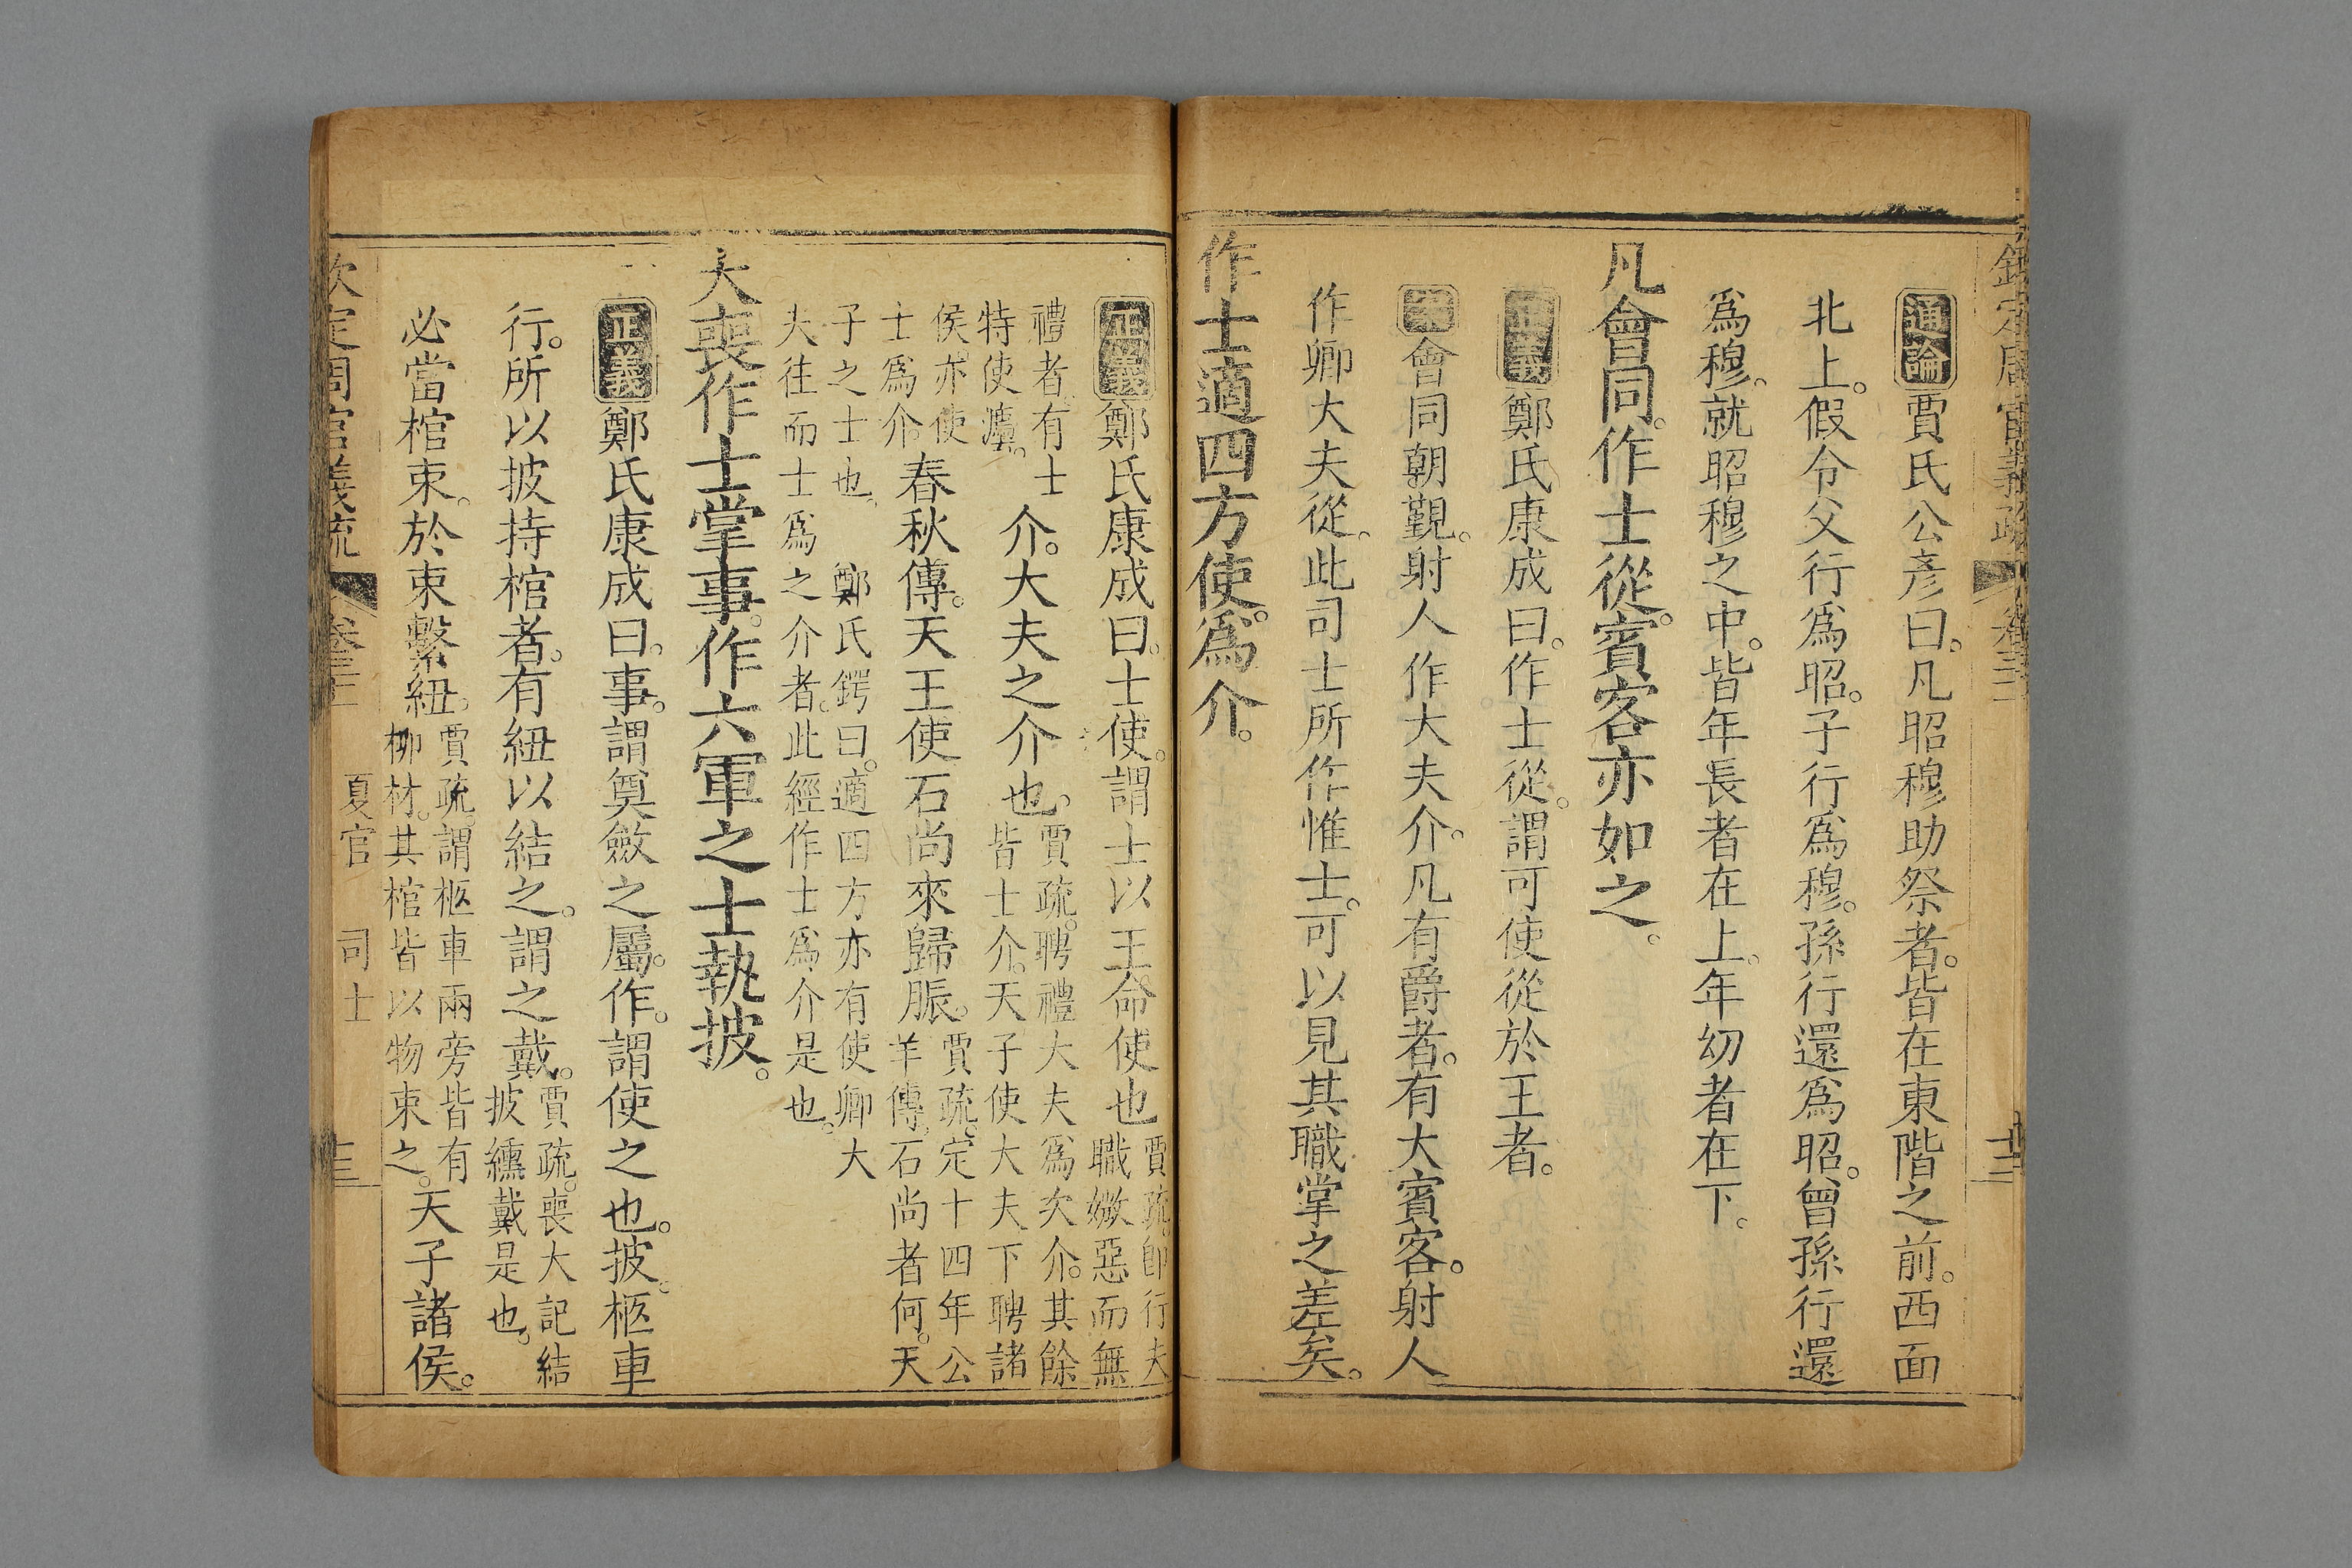 通論賈氏公彥曰。凡昭穆助祭者。皆在東階之前。西面
北上。假令父行爲昭。子行爲穆。孫行還爲昭。曾孫行還
爲穆。就昭穆之中。皆年長者在上。年幼者在下。
凡會同。作士從。賓客亦如之。
正義鄭氏康成曰。作士從。謂可使從於王者。
會同朝覲。射人作大夫介。凡有爵者。有大賓客。射人
作卿大夫從。此司士所作惟士。可以見其職掌之差矣。
作士適四方使。爲介。
正義鄭氏康成曰。士使。謂士以王命使也
賈疏。卽行夫
職媺惡而無
禮者。有士
特使灋。
介。大夫之介也。
賈疏。聘禮大夫爲次介。其餘
皆士介。天子使大夫下聘諸
侯。亦使
士爲介。
春秋傳。天王使石尚來歸脤。
賈疏。定十四年公
羊傳。石尚者何。天
子之士也。 鄭氏鍔曰。適四方亦有使卿大
夫往而士爲之介者。此經作士爲介是也。
大喪作士掌事。作六軍之士執披。
正義鄭氏康成曰。事。謂奠斂之屬。作。謂使之也。披。柩車
行。所以披持棺者。有紐以結之。謂之戴。
賈疏。喪大記結
披纁戴是也。
必當棺束。於束繫紐。
賈疏。謂柩車兩旁皆有
柳材。其棺皆以物束之。
天子諸侯。
欽定周官義疏
夏官 司士